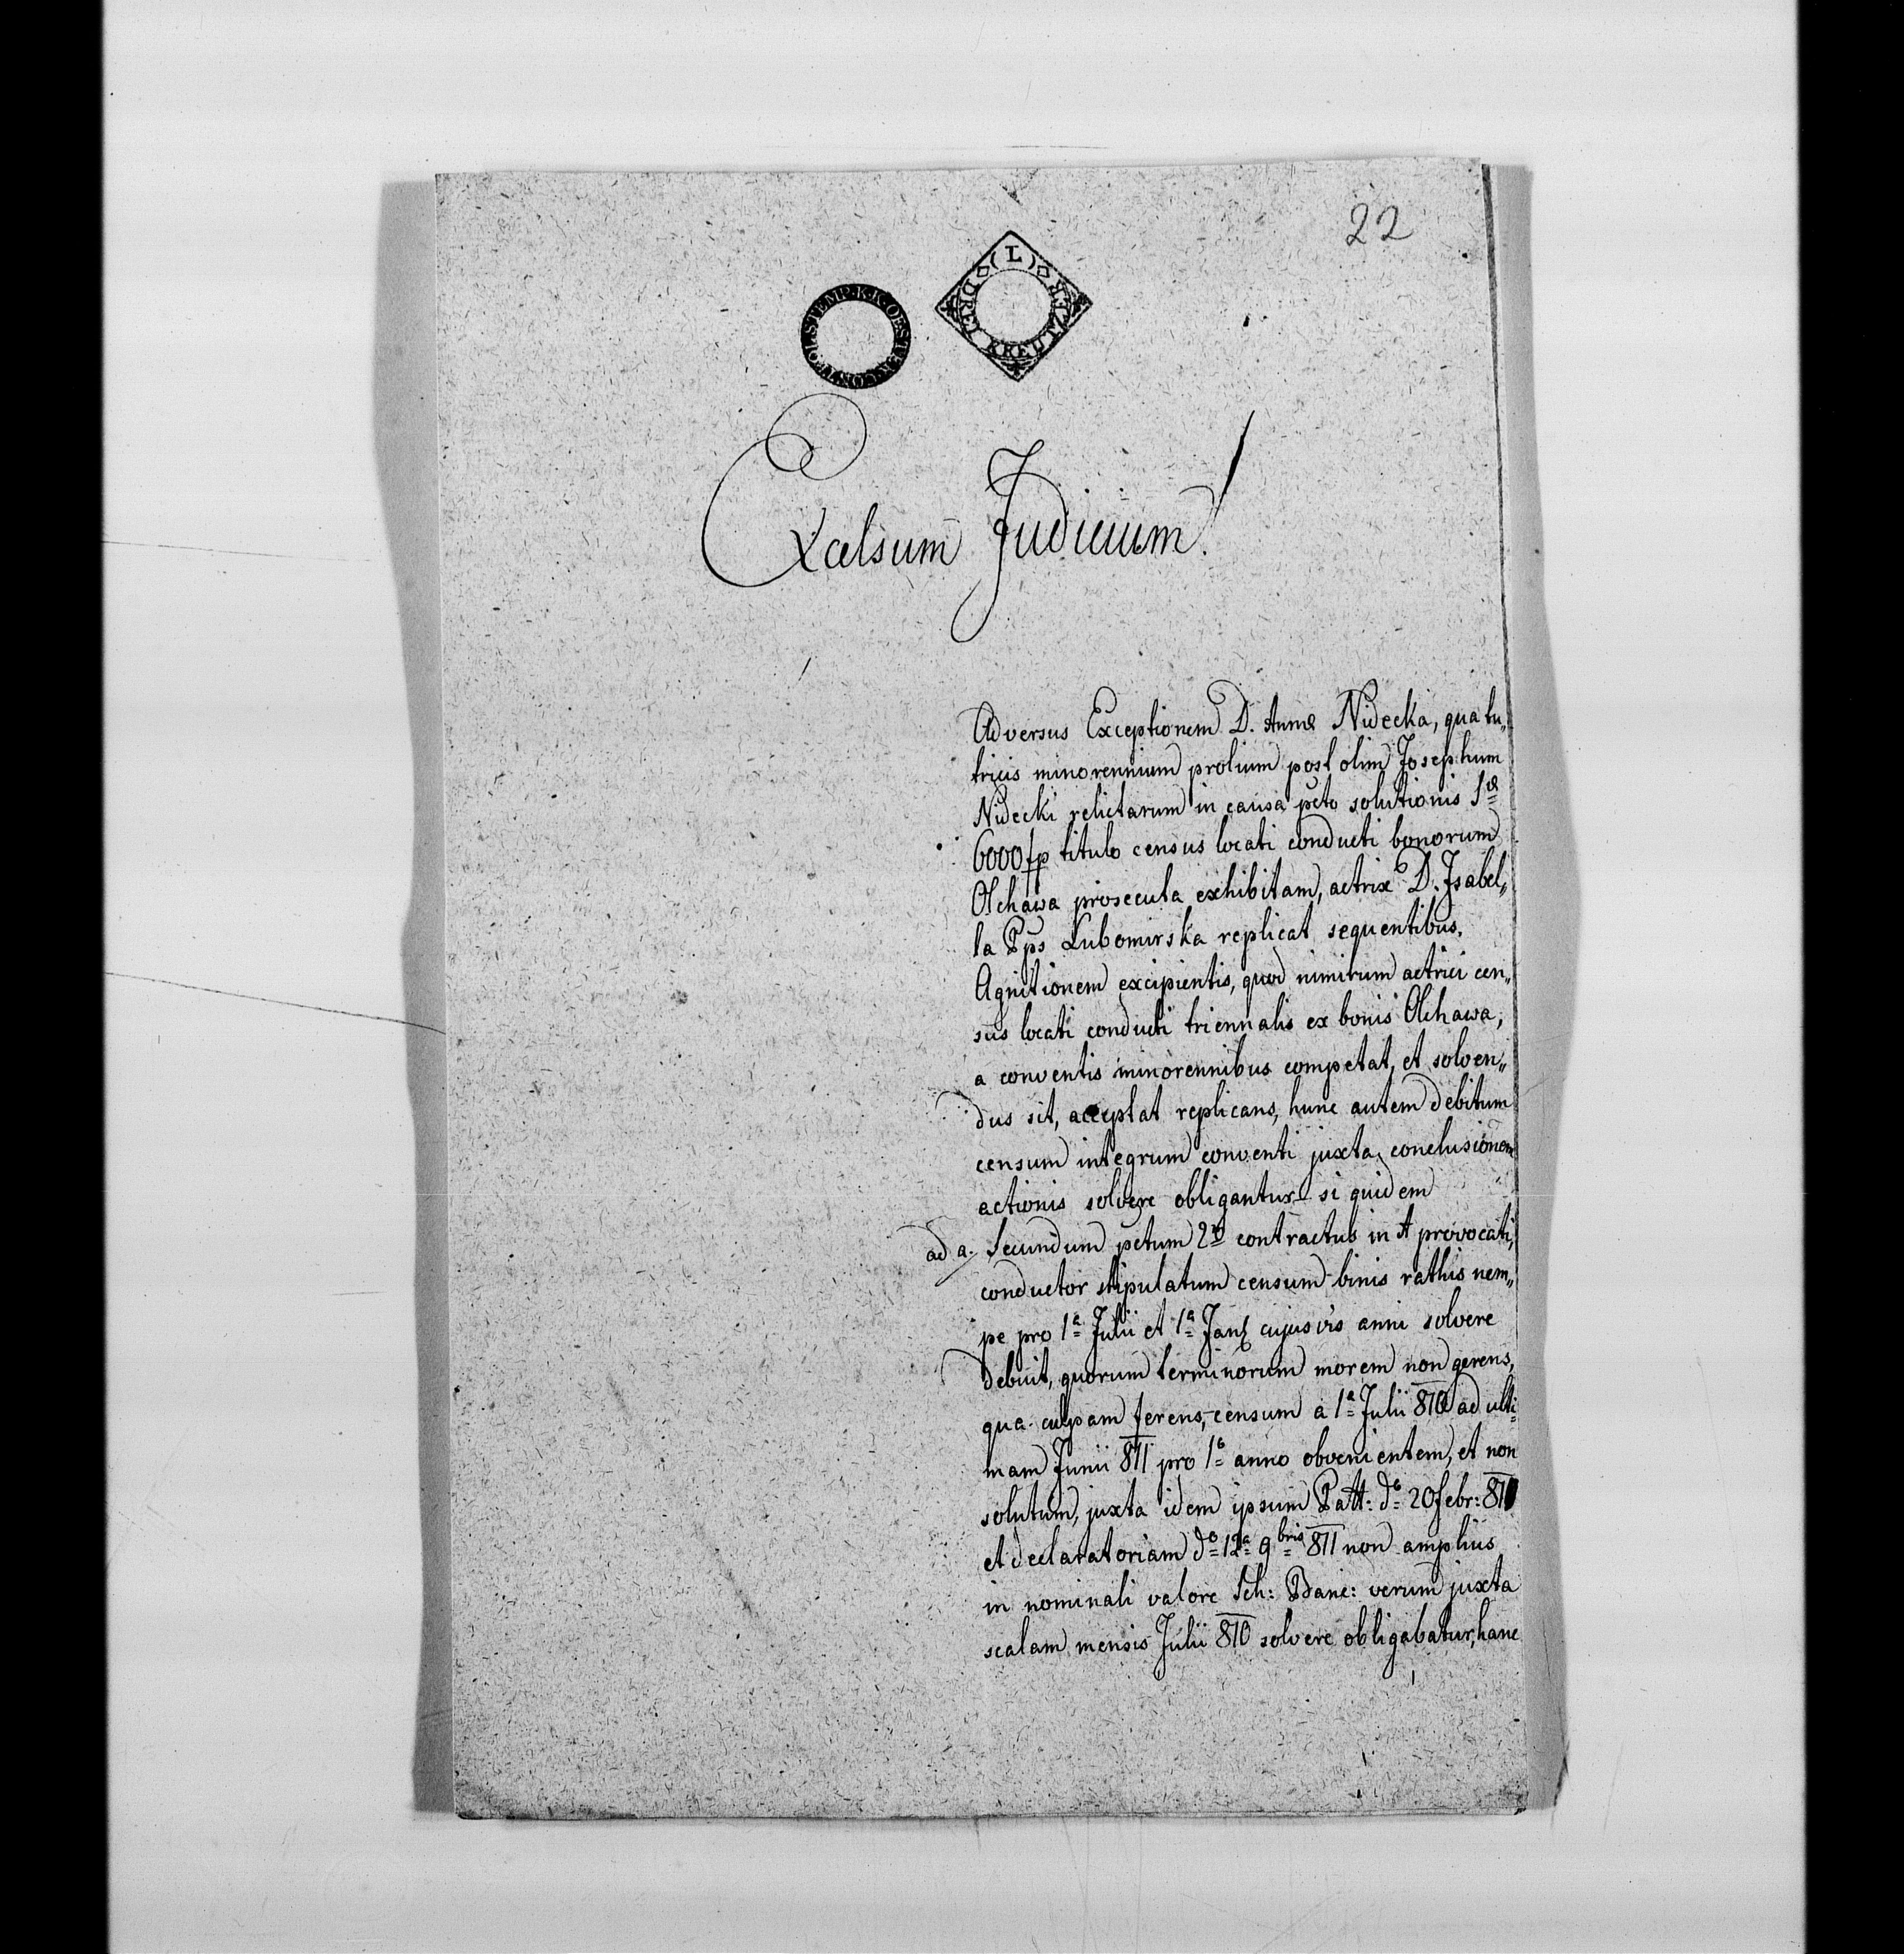 22
(L) DREI KREUTZER
STEMP. K. K. OESTER. CONTROL
Excelsum Judicium!
Adversus Exceptionem D. Annæ Nidecka, qua tu„
tricis minorennium prolium post olim Josephum
Nidecki relictarum in causa pcto solutionis Sæ
6000 fp titulo census locati conducti bonorum
Olchawa prosecuta exhibitam, actrix D. Isabel„
la Pps Lubomirska replicat sequentibus.
Agnitionem excipientis, quod nimirum actrici cen„
sus locati conducti triennalis ex bonis Olchawa,
a conventis minorennibus competat, et solven„
dus sit, acceptat replicans, hunc autem debitum
censum integrum conventi juxta conclusionem
actionis solvere obligantur si quidem
ad a. Secundum pctum 2dum contractus in A provocati,
conductor stipulatum censum binis rathis nem„
pe pro 1a Julii et 1a Jan cujusvis anni solvere
debuit, quorum terminorum morem non gerens,
qua culpam ferens, censum a 1a Julii 810 ad ulti=
mam Junii 811 pro 1o anno obvenientem, et non
solutum, juxta idem ipsum Patt: do 20 Febr: 811
et declaratoriam do 12a 9bris 811 non amplius
in nominali valore Sch: Banc: verum juxta
scalam mensis Julii 810 solvere obligabatur, hanc